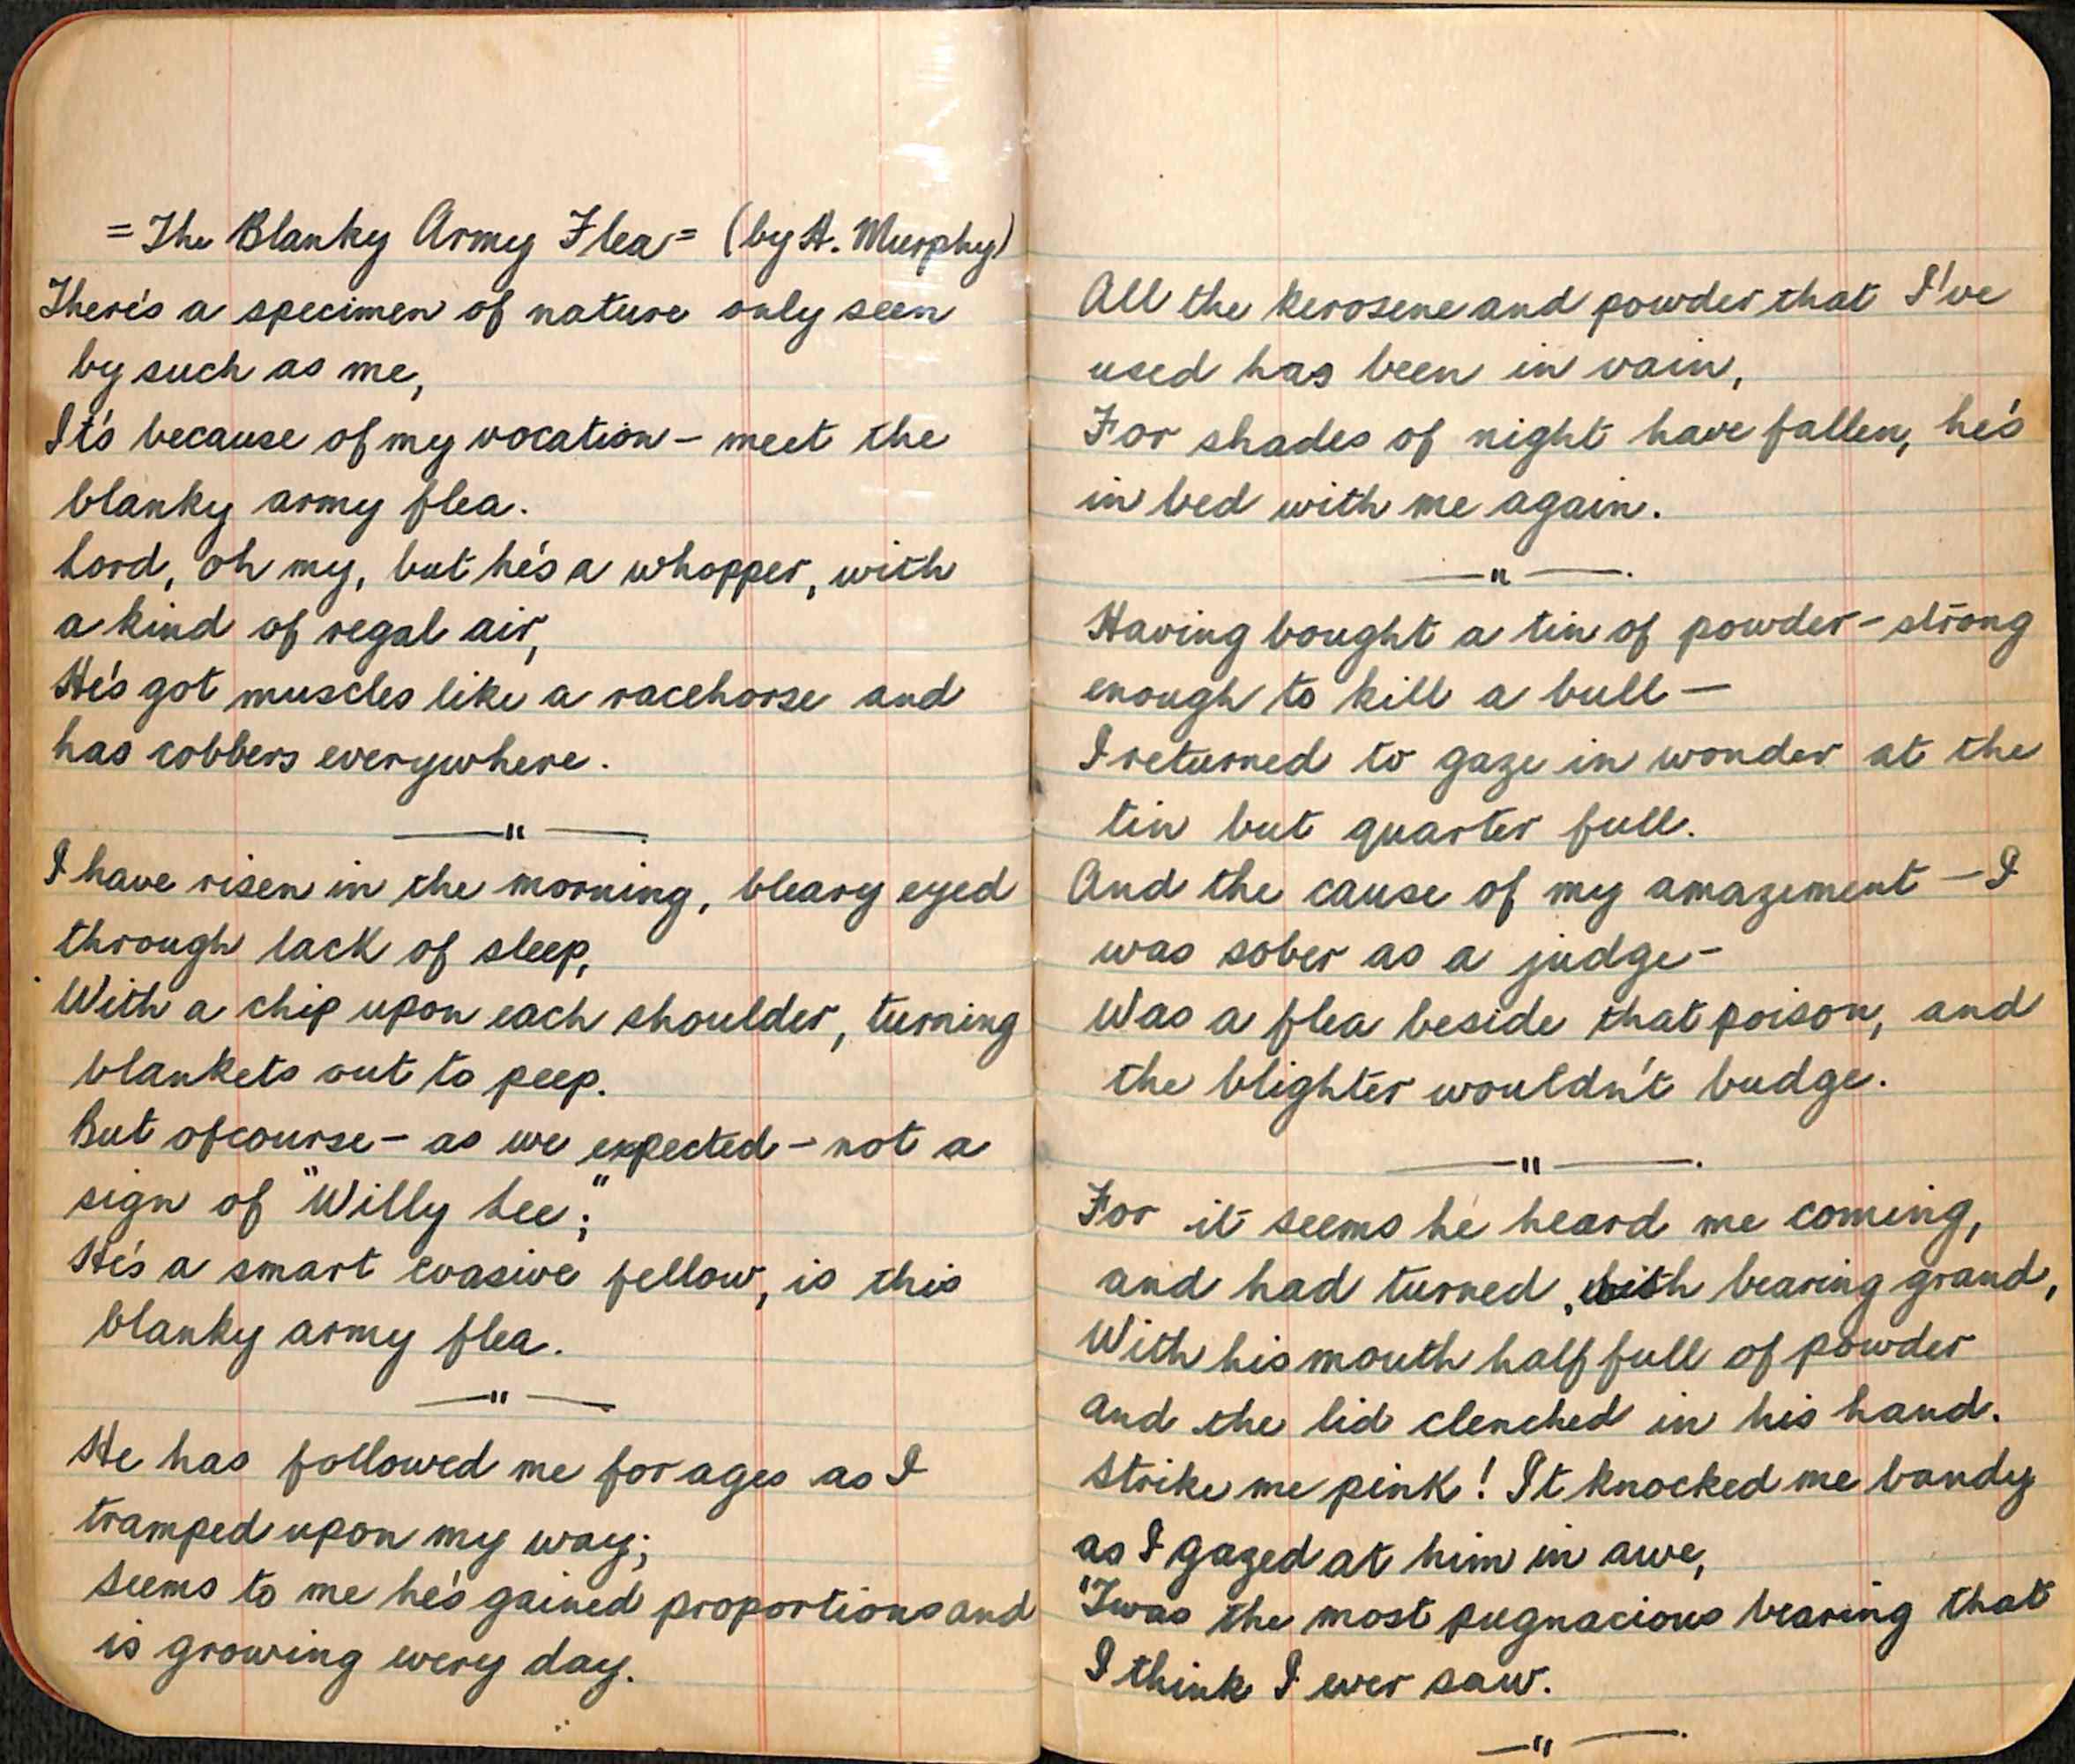 = The Blanky Army Flea = (by A. Murphy)
There's a specimen of nature only seen
by such as me,
It's because of my vocation – meet the
blanky army flea.
Lord, oh my, but he's a whopper, with
a kind of regal air,
He's got muscles like a racehorse and
has cobbers everywhere.
— " —.
I have risen in the morning, bleary eyed
through lack of sleep,
With a chip upon each shoulder, turning
blankets out to peep.
But ofcourse – as we expected – not a
sign of "Willy Lee;"
He's a smart evasive fellow, is this
blanky army flea.
— " —
He has followed me for ages as I
tramped upon my way;
Seems to me he's gained proportions and
is growing every day.
All the kerosene and powder that I've
used has been in vain,
For shades of night have fallen, he's
in bed with me again.
— " —.
Having bought a tin of powder – strong
enough to kill a bull —
I returned to gaze in wonder at the
tin but quarter full.
And the cause of my amazement – I
was sober as a judge –
Was a flea beside that poison, and
the blighter wouldn't budge.
— " —.
For it seems he heard me coming,
and had turned, with bearing grand,
With his mouth half full of powder
and the lid clenched in his hand.
Strike me pink! It knocked me bandy
as I gazed at him in awe,
'Twas the most pugnacious bearing that
I think I ever saw.
— " —.